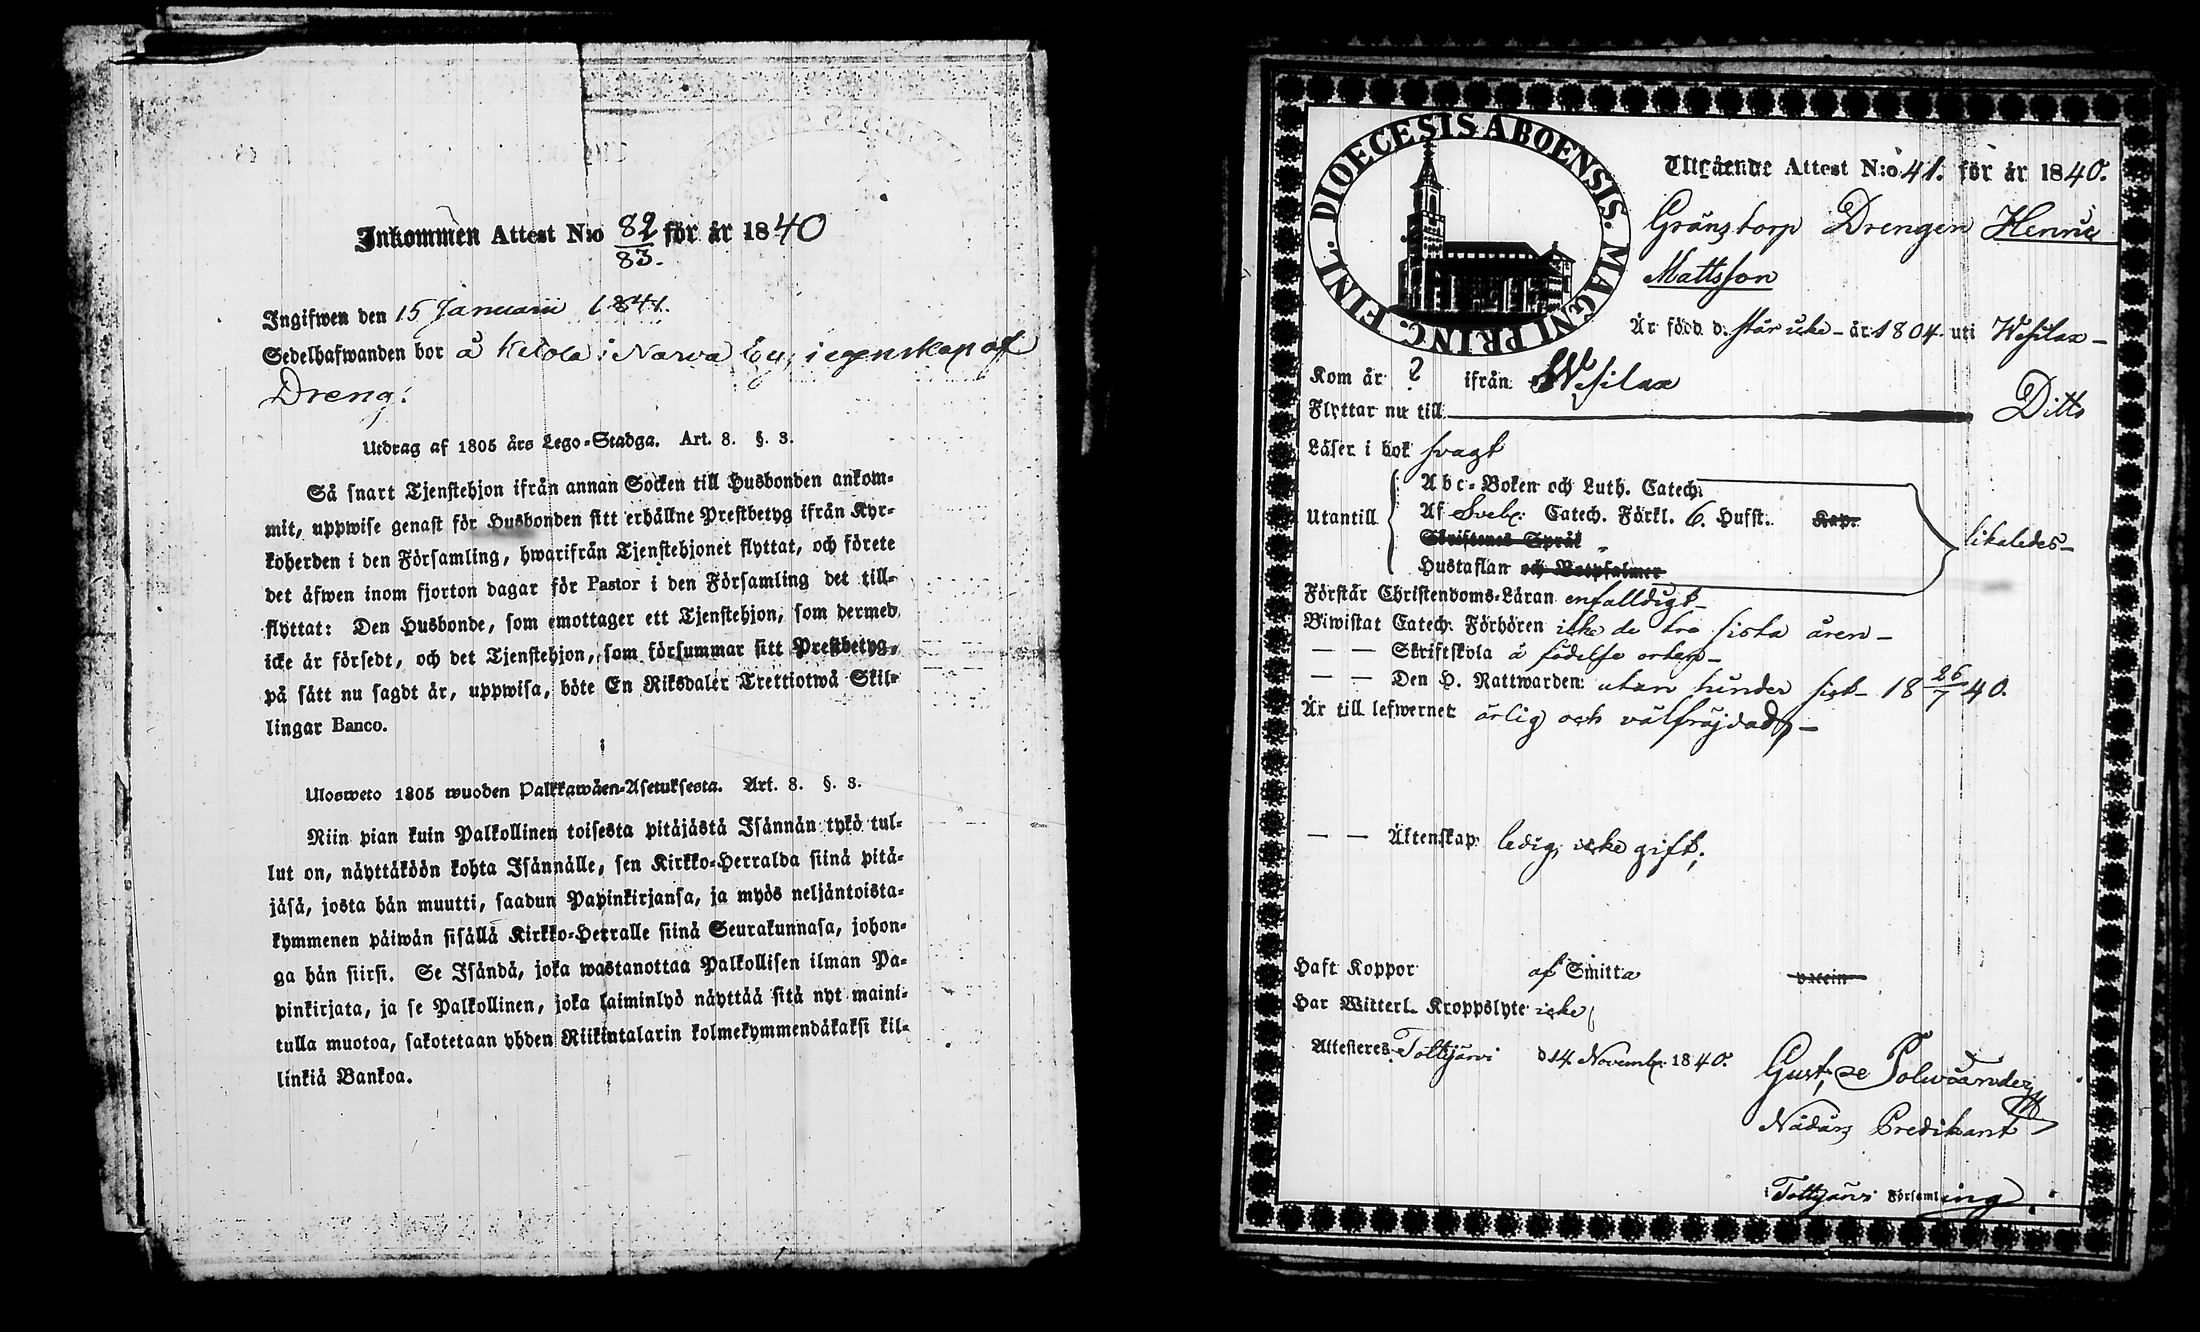 Inkommen Attest N:o 82 för år 1840
83.
Ingifwen den 15 Januarii 1841.
Sedelhafwanden bor å Kelola i Narva by, i egenskap af
Dreng.
Utdrag af 1805 års Lego-Stadga. Art. 8. §. 3.
Så snart Tjenstehjon ifrån annan Socken till Husbonden ankom-
mit, uppwise genast för Husbonden sitt erhållne Prestbetyg ifrån Kyr-
koherden i den Församling, hwarifrån Tjenstehjonet flyttat, och förete
det äfwen inom fjorton dagar för Pastor i den Församling det till-
flyttat: Den Husbonde, som emottager ett Tjenstehjon, som dermed
icke är försedt, och det Tjenstehjon, som försummar sitt Prestbetyg,
på sätt nu sagdt är, uppwisa, böte En Riksdaler Trettiotwå Skil-
lingar Banco.
Ulosweto 1805 wuoden Palkkawäen-Asetuksesta. Art. 8. §. 3.
Niin pian kuin Palkollinen toisesta pitäjästä Isännän tykö tul-
lut on, näyttäköön kohta Isännälle, sen Kirkko-Herralda siinä pitä-
jäsä, josta hän muutti, saadun Papinkirjansa, ja myös neljäntoista-
kymmenen päiwän sisällä Kirkko-Herralle siinä Seurakunnasa, johon-
ga hän siirsi. Se Isändä, joka wastanottaa Palkollisen ilman Pa-
pinkirjata, ja se Palkollinen, joka laiminlyö näyttää sitä nyt maini-
tulla muotoa, sakotetaan yhden Riikintalarin kolmekymmendäkaksi kil-
linkiä Bankoa.
DIOECESIS ABOENSIS. MAGNI PRINC. FINL.
Utgående Attest N:o 41. för år 1840.
Gränstorp Drengen Henric
Mattsson
Är född d. står icke - år 1804. uti Wesilax -
Kom år ? ifrån Wesilax
Flyttar nu till Ditto
Läser i bok svagt
Abc-Boken och Luth. Catech.
Utantill Af Sveb. Catech. Förkl. 6. Hufst. Kap. likaledes -
Skriftenes Språk
Hustaflan och Botpsalmer
Förstår Christendoms-Läran enfalldigt -
Biwistat Catech. Förhören icke de tre sista åren -
— — Skriftskola å födelse orten -
— — Den H. Nattwarden: utan hinder sist - 18 26/7 40.
Är till lefwernet ärlig och välfräjdad, -
— — Äktenskap: ledig, icke gift;
Haft Koppor af Smitta vaccin
Har Witterl. Kroppslyte icke
Attesteres Tottijärvi d 14 Novemb. 1840.
Gust. Polwiander
Nådårs Predikant
i Tottijärvi Församling.